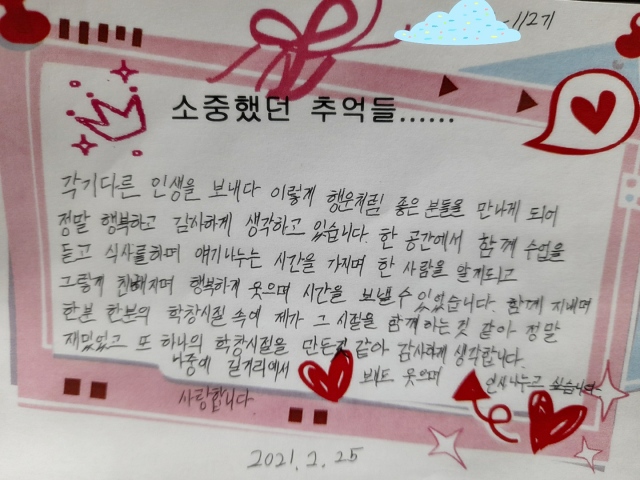 112기
소중했던 추억들......
각기다른 인생을 보내다 이렇게 행운처럼 좋은 분들을 만나게 되어
정말 행복하고 감사하게 생각하고 있습니다. 한 공간에서 함께 수업을
듣고 식사를하며 얘기나누는 시간을 가지며 한 사람을 알게되고
그렇게 친해지며 행복하게 웃으며 시간을 보낼수 있었습니다. 함께 지내며
한분 한분의 학창시절 속에 제가 그 시절을 함께하는것 같아 정말
재밌었고 또 하나의 학창시절을 만든것 같아 감사하게 생각합니다.
나중에 길거리에서 봐도 웃으며 인사나누고 싶습니다.
사랑합니다.
2021. 2. 25